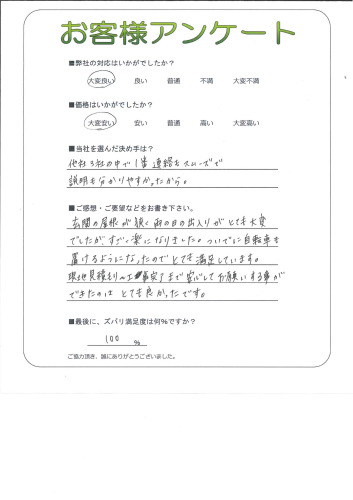 お客様アンケート
■弊社の対応はいかがでしたか？
大変良い 良い 普通 不満 大変不満
■価格はいかがでしたか？
大変安い 安い 普通 高い 大変高い
■当社を選んだ決め手は？
他社3社の中で1番連絡もスムーズで
説明も分かりやすかったから。
■ご感想・ご要望などをお書き下さい。
玄関の屋根が狭く雨の日の出入りがとても大変
でしたが、すごく楽になりました。ついでに自転車も
置けるようになったのでとても満足しています。
現地見積もり〜工事完了まで安心してお願いする事が
できたのはとても良かったです。
■最後に、ズバリ満足度は何%ですか？
100 %
ご協力頂き、誠にありがとうございました。